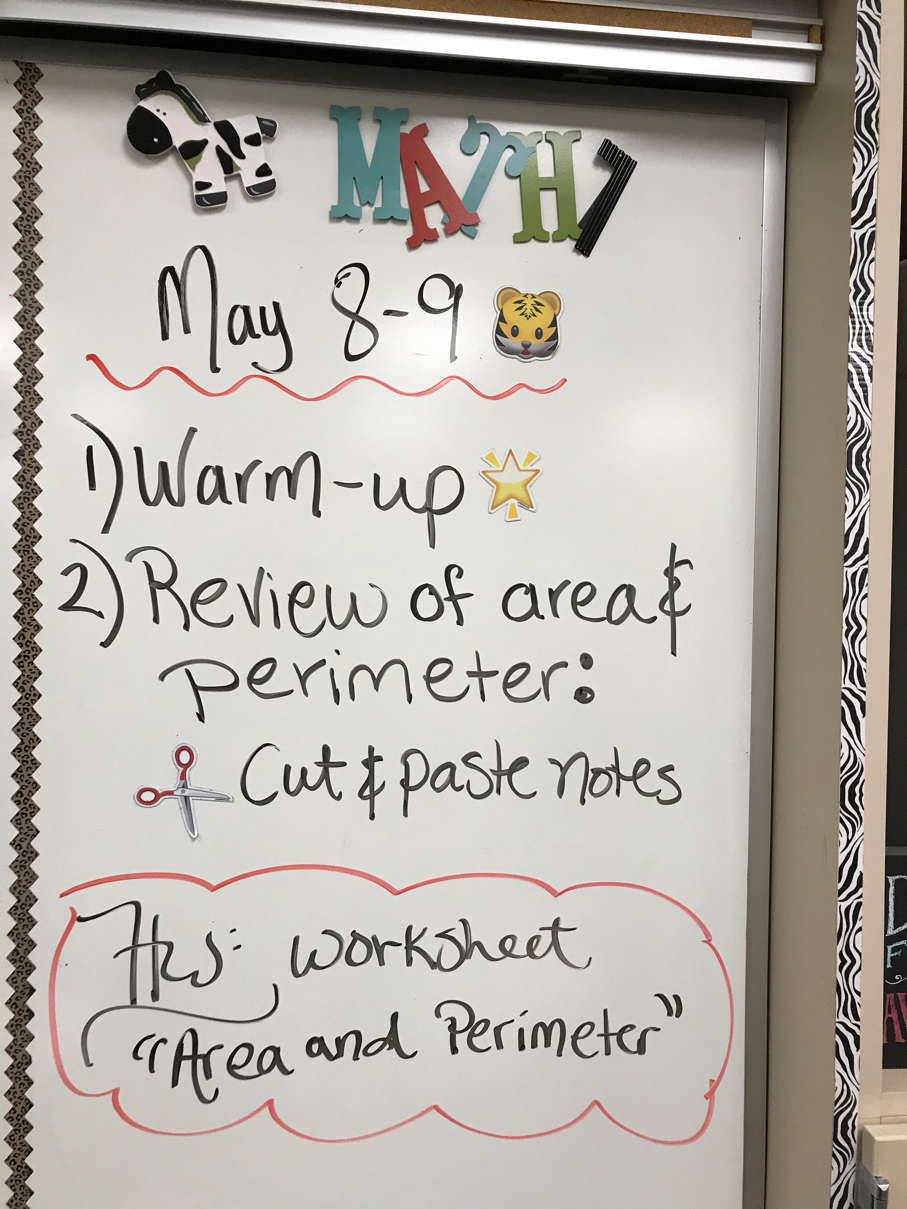 MATH 7
May 8-9
1) Warm-up
2) Review of area &
perimeter:
Cut & paste notes
HW: worksheet
"Area and Perimeter"